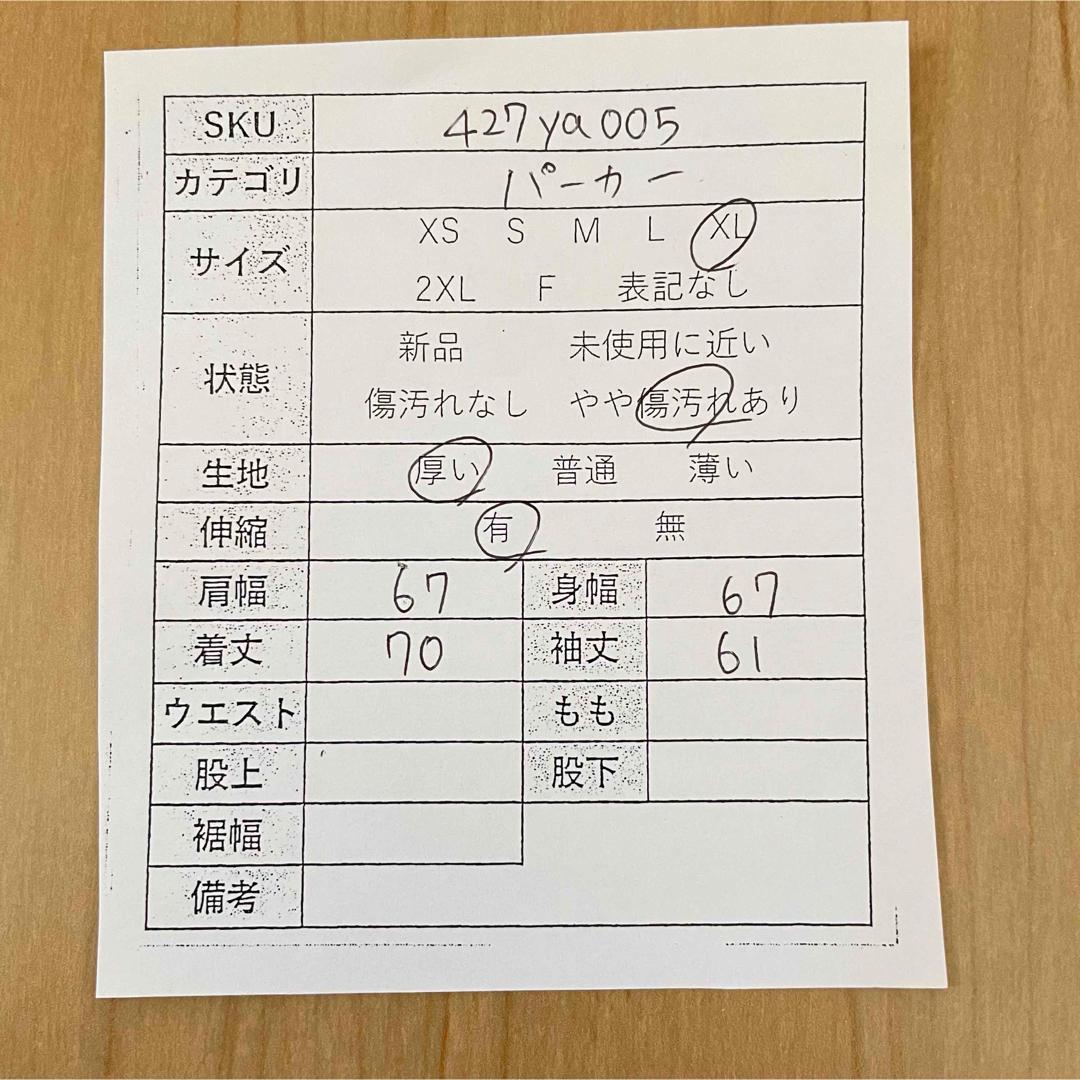 SKU 427ya005
カテゴリ パーカー
サイズ XS S M L XL
2XL F 表記なし
状態 新品 未使用に近い
傷汚れなし やや傷汚れあり
生地 厚い 普通 薄い
伸縮 有 無
肩幅 67 身幅 67
着丈 70 袖丈 61
ウエスト もも
股上 股下
裾幅
備考